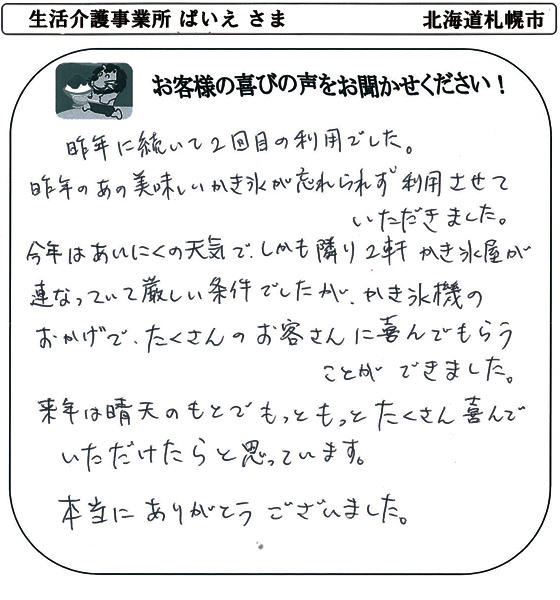 生活介護事業所 ぱいえ さま
北海道札幌市
お客様の喜びの声をお聞かせください！
昨年に続いて2回目の利用でした。
昨年のあの美味しいかき氷が忘れられず利用させて
いただきました。
今年はあいにくの天気で、しかも隣り2軒 かき氷屋が
連なっていて厳しい条件でしたが、かき氷機の
おかげで、たくさんのお客さんに喜んでもらう
ことが できました。
来年は晴天のもとで もっと もっと たくさん 喜んで
いただけたらと思っています。
本当に ありがとう ございました。